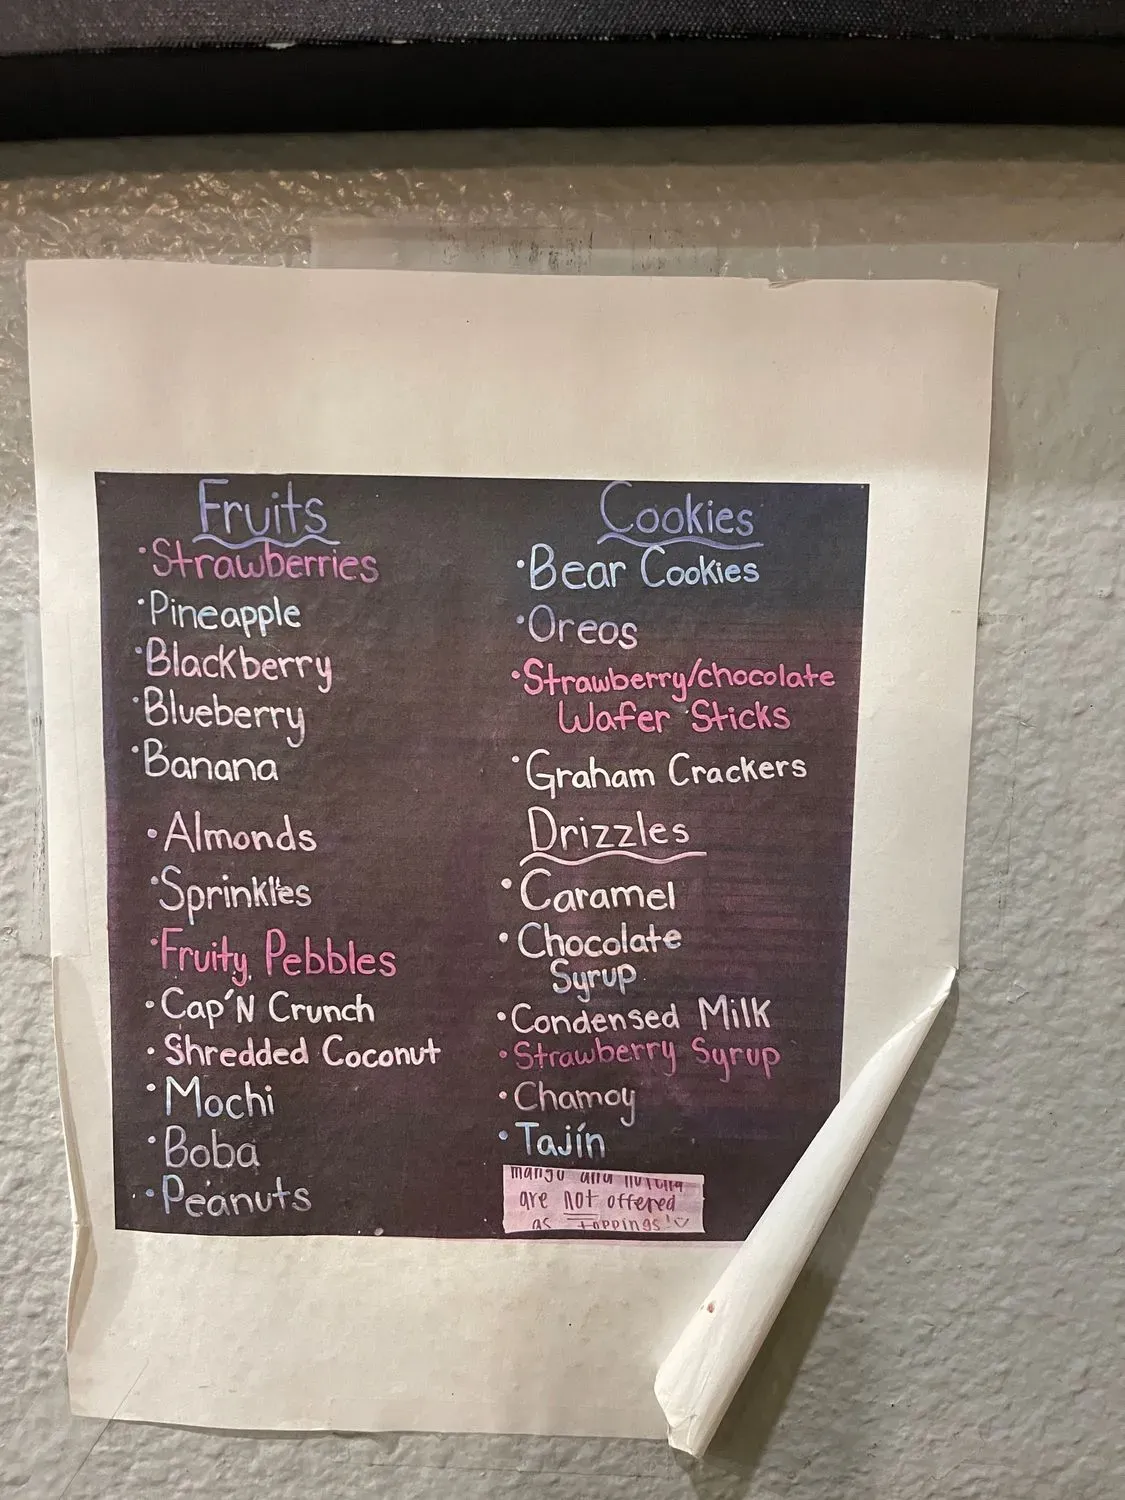 Fruits
·Strawberries
·Pineapple
·Blackberry
·Blueberry
·Banana
·Almonds
·Sprinkles
·Fruity Pebbles
·Cap'N Crunch
·Shredded Coconut
·Mochi
·Boba
·Peanuts
Cookies
·Bear Cookies
·Oreos
·Strawberry/chocolate
Wafer Sticks
·Graham Crackers
Drizzles
·Caramel
·Chocolate
Syrup
·Condensed Milk
·Strawberry Syrup
·Chamoy
·Tajín
mango and nutella
are not offered
as toppings!♡